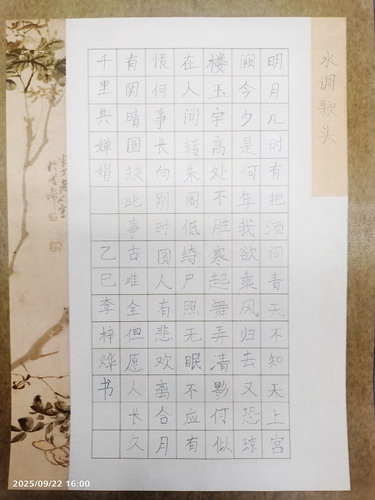 水调歌头
明月几时有把酒问青天不知天上宫
阙今夕是何年我欲乘风归去又恐琼
楼玉宇高处不胜寒起舞弄清影何似
在人间转朱阁低绮户照无眠不应有
恨何事长向别时圆人有悲欢离合月
有阴晴圆缺此事古难全但愿人长久
千里共婵娟 乙巳李梓烨书
2025/09/22 16:00